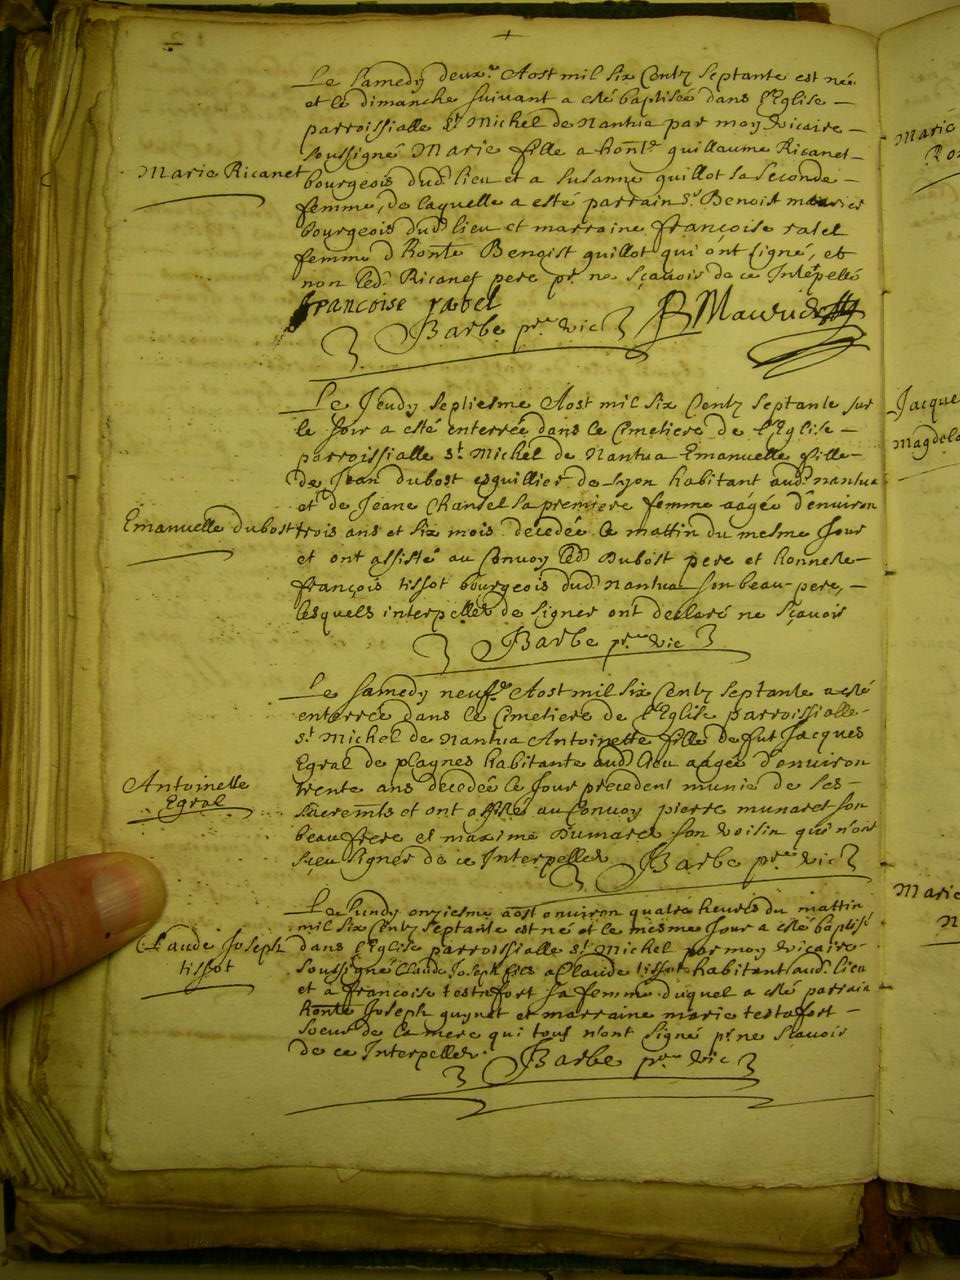 Marie Ricanet
Le Samedy deux.e Aost mil six Centz Septante est née
et le dimanche suivant a esté baptisée dans l'Eglise
parroissialle St Michel de Nantua par moy vicaire
soussigné Marie fille a hon.ble guillaume Ricanet
bourgeois dud. lieu et a susanne guillot sa seconde
femme, de laquelle a esté parrain Sr Benoist
bourgeois dud. lieu et marraine françoise ravel
femme d'honte. Benoist guillot qui ont signé, et
non led. Ricanet pere pr. ne sçavoir de ce Interpellé
francoise ravel
Barbe pre. vic
Emanuelle dubost
Le Jeudy septiesme Aost mil six Centz Septante sur
le soir a esté enterrée dans le Cimetiere de l'Eglise
parroissialle St. Michel de Nantua Emanuelle fille
de Jean dubost esguillier de Lyon habitant aud. nantua
et de Jeane Chansel sa premiere femme aagée d'environ
trois ans et six mois decedée le mattin du mesme Jour
et ont assisté au Convoy led. Dubost pere et honneste
françois tissot bourgeois dud. Nantua son beau-pere,
lesquels interpellez de signer ont declaré ne sçavoir
Barbe pre. vic
Antoinette
Egral
Le Samedy neufe. Aost mil six Centz Septante a esté
enterrée dans le Cimetiere de l'Eglise parroissialle
St. Michel de Nantua Antoinette fille de fut Jacques
Egral de plagnes habitante aud. lieu aagée d'environ
trente ans decedée le Jour precedent munie de ses
sacremts. et ont assisté au Convoy pierre munaret son
beau frere et maxime Dumarest son voisin qui n'ont
sçeu signer de ce Interpellez
Barbe pre. vic
Claude Joseph
tissot
Le Lundy onziesme aost environ quatre heures du mattin
mil six Centz Septante est né et le mesme Jour a esté baptisé
dans l'Eglise parroissialle St. Michel par moy vicaire
soussigné Claude Joseph fils a Claude tissot habitant aud. lieu
et a francoise testafort sa femme duquel a esté parrain
honte. Joseph guynet et marraine marie testafort
soeur de la mere qui tous n'ont signé pr. ne sçavoir
de ce Interpellez.
Barbe pre. vic